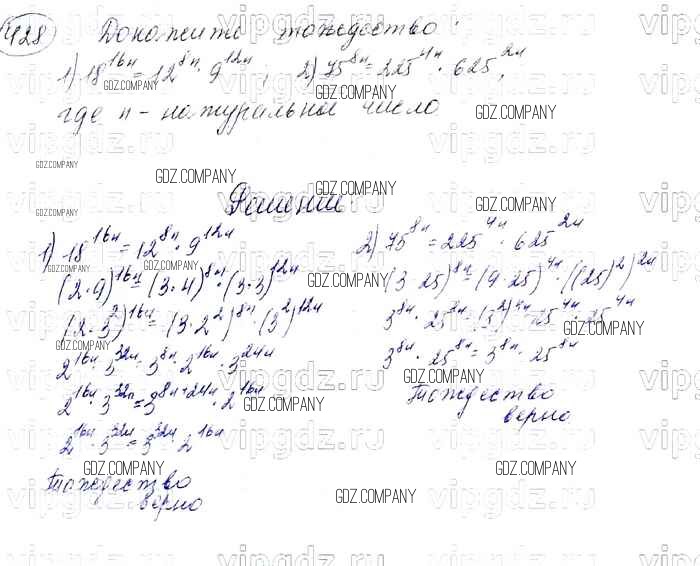 428 Докажите тождество:
1) 18^16n = 12^8n · 9^12n; 2) 75^8n = 225^4n · 625^2n,
где n - натуральное число
Решение
1) 18^16n = 12^8n · 9^12n
(2·9)^16n = (3·4)^8n · (3·3)^12n
(2·3^2)^16n = (3·2^2)^8n · (3^2)^12n
2^16n · 3^32n = 3^8n · 2^16n · 3^24n
2^16n · 3^32n = 3^8n+24n · 2^16n
2^16n · 3^32n = 3^32n · 2^16n
Тождество
верно
2) 75^8n = 225^4n · 625^2n
(3·25)^8n = (9·25)^4n · ((25)^2)^2n
3^8n · 25^8n = (3^2)^4n · 25^4n · 25^4n
3^8n · 25^8n = 3^8n · 25^8n
Тождество
верно
vipgdz.ru
GDZ.COMPANY